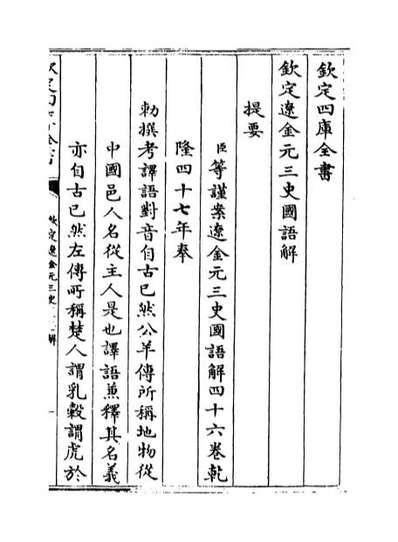 欽定四庫全書
欽定遼金元三史國語解
提要
臣等謹案遼金元三史國語解四十六卷乾
隆四十七年奉
勅撰考譯語對音自古已然公羊傳所稱地物從
中國邑人名從主人是也譯語兼釋其名義
亦自古已然左傳所稱楚人謂乳穀謂虎於
欽定四庫全書
欽定遼金元三史
解
一